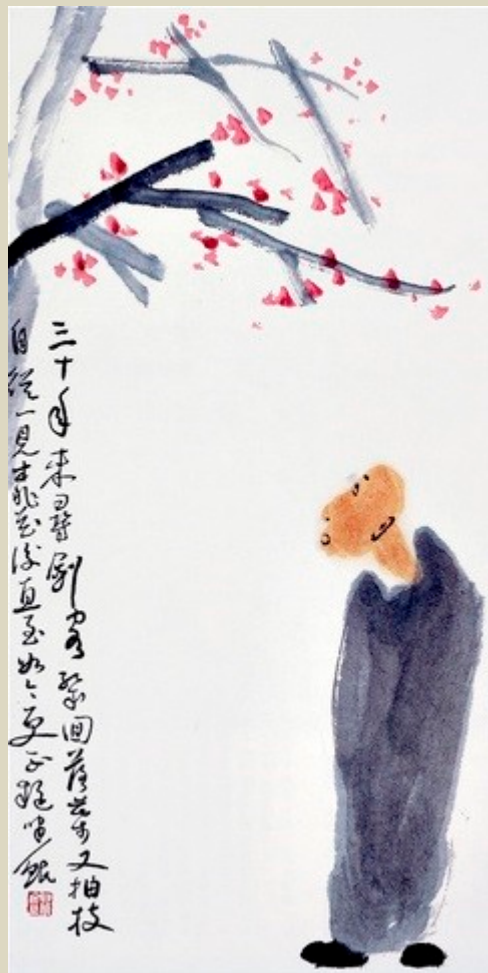 三十年来尋剑客幾回落葉又抽枝
自從一見桃花後直至如今更不疑